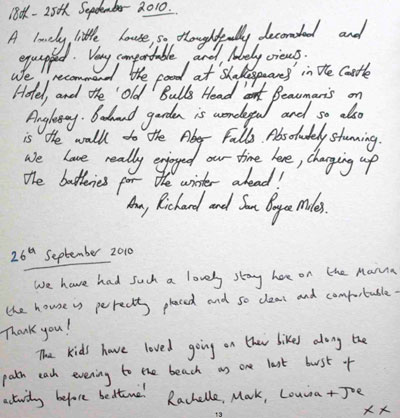 18th - 25th September 2010.
A lovely little house, so thoughtfully decorated and
equipped. Very comfortable and lovely views.
We recommend the food at 'Shakespeares' in the Castle
Hotel, and the 'Old Bulls Head' Beaumaris on
Anglesey. Bodnant garden is wonderful and so also
is the walk to the Aber Falls. Absolutely stunning.
We have really enjoyed our time here, charging up
the batteries for the winter ahead!
Ann, Richard and Sam Boyce Miles.
26th September 2010
We have had such a lovely stay here on the Marina
the house is perfectly placed and so clean and comfortable -
Thank you!
The kids have loved going on their bikes along the
path each evening to the beach as one last burst of
activity before bedtime! Rachelle, Mark, Louisa + Joe
x x
13